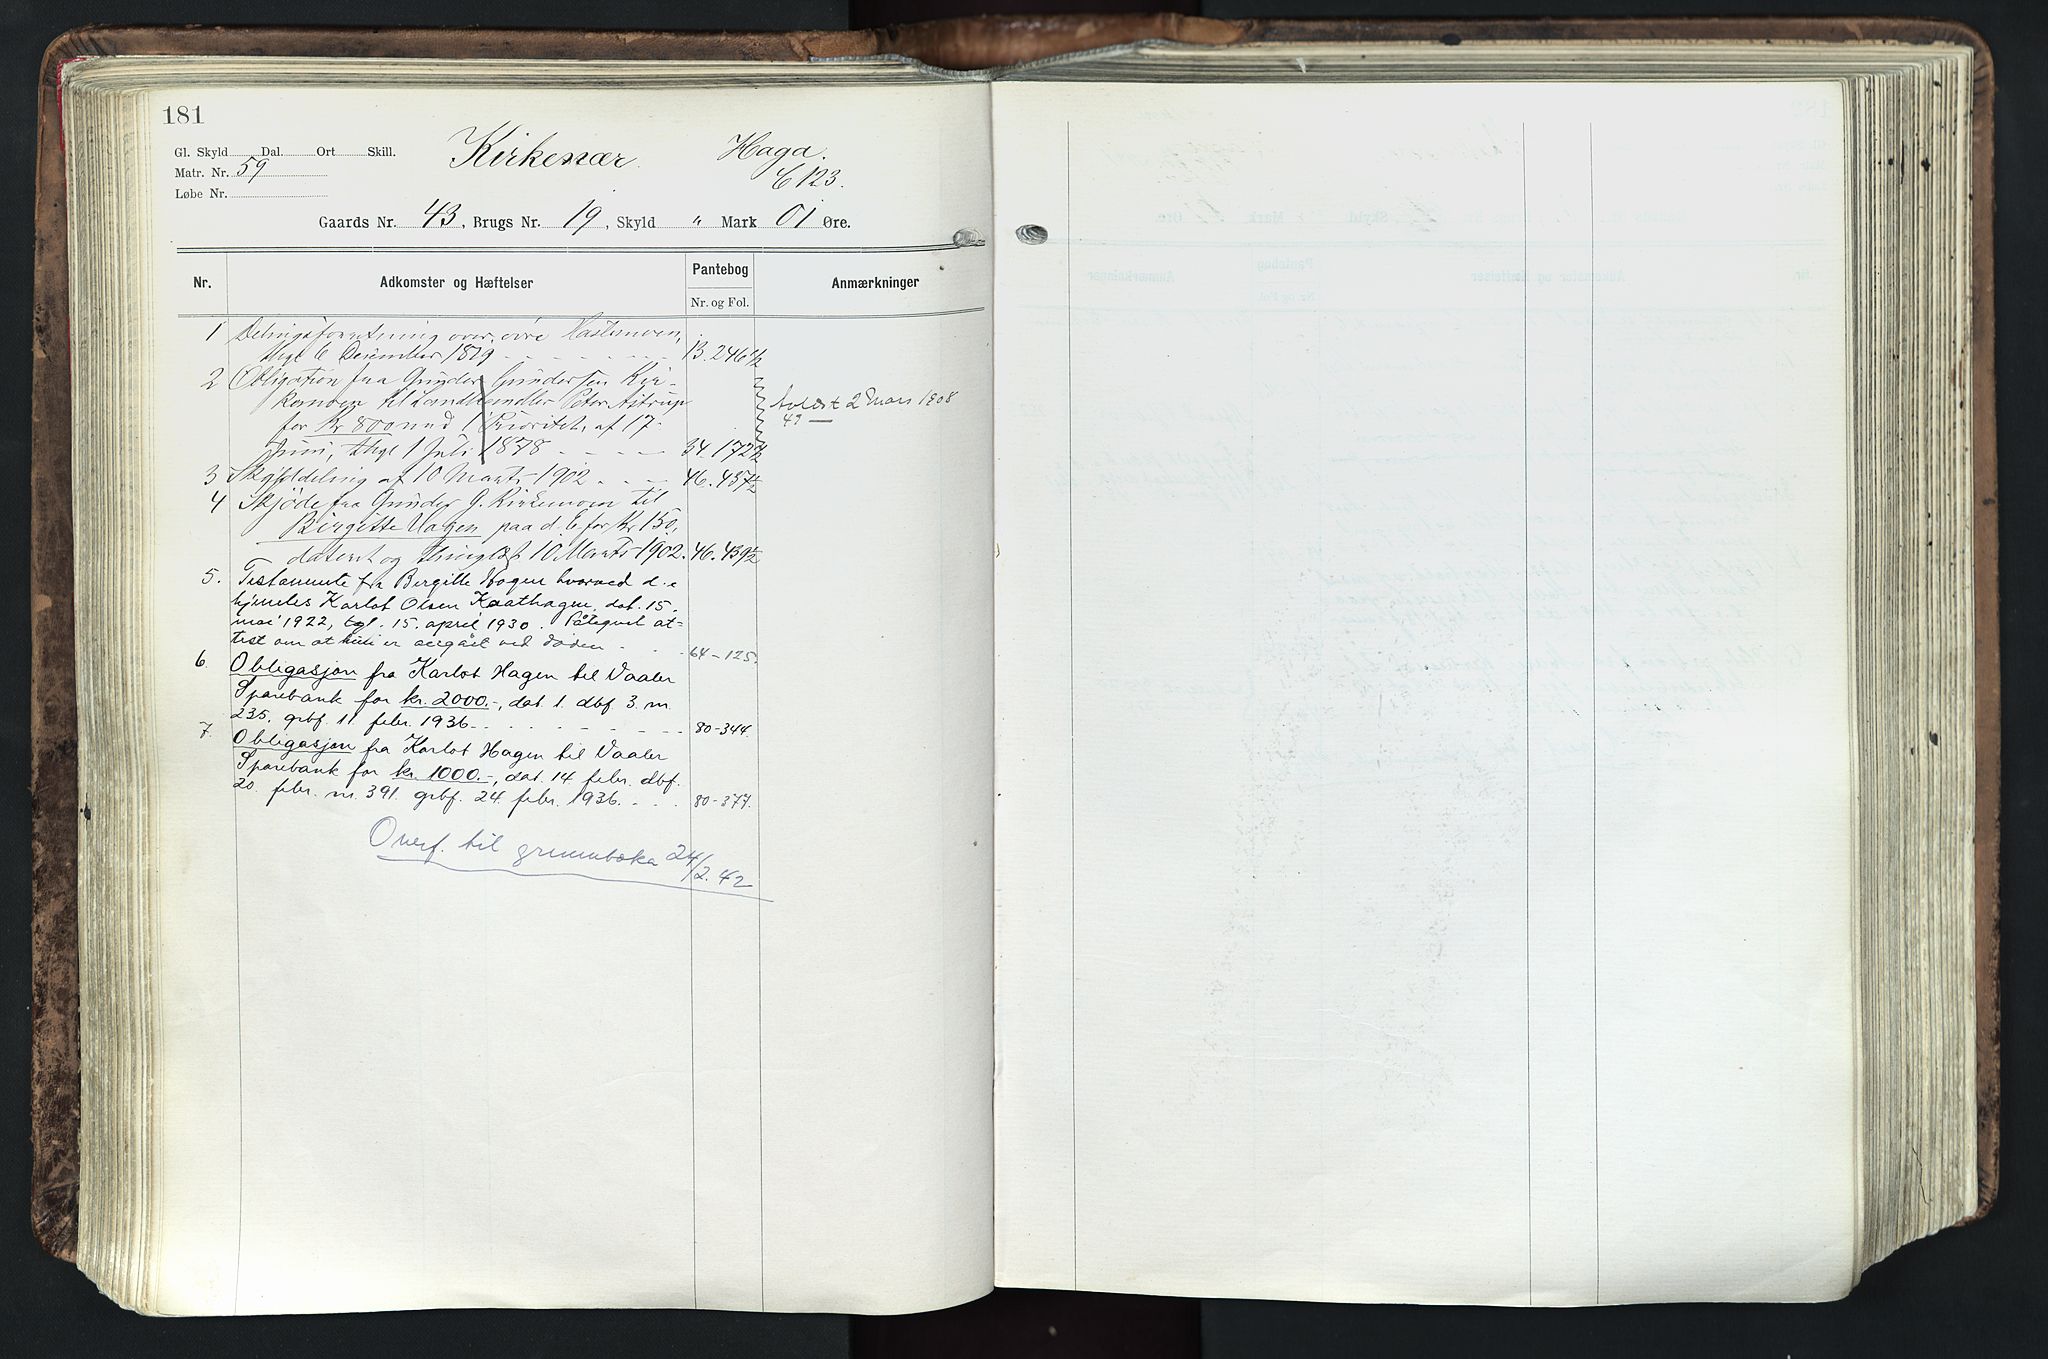 181
Gl. Skyld Dal. Ort Skill.
Matr. Nr. 59
Løbe Nr.
Kirkenær Haga.
C 123.
Gaards Nr. 43, Brugs Nr. 19, Skyld " Mark 01 Øre.
Nr. Adkomster og Hæftelser Pantebog Anmærkninger
Nr. og Fol.
1 Delingsforretning over øvre Hastemoen,
thgl 6 December 1879 13. 246 1/2
2 Obligation fra Gunder Gundersen Kir-
kemoen til Landhandler Peter Astrup
for Kr 800 med 1 Prioritet, af 17
Juni, thgl 1 Juli 1878 34. 172
Avlæst 2 Mars 1908
49
3 Skylddeling af 10 Marts 1902 46. 437 1/2
4 Skjøde fra Gunder G. Kirkemoen til
Birgitte Hagen paa d. E. for Kr 150,
dateret og thinglæst 10 Marts 1902. 46. 439 1/2
5. Testamente fra Bergitte Hagen hvorved d. e
hjemles Karlot Olsen Kaathagen, dat. 15.
mai 1922, tgl. 15. april 1930. Påtegnet at-
test om at hun er avgått ved døden 64-125.
6. Obligasjon fra Karlot Hagen til Vaaler
Sparebank for kr. 2000.-, dat 1. dbf 3. nr.
235, grbf. 11 febr. 1936 80-344.
7. Obligasjon fra Karlot Hagen til Vaaler
Sparebank for kr. 1000.-, dat. 14 febr. dbf.
20. febr. nr. 391. grbf. 24. febr. 1936. 80-377.
Overf. til grunnboka 24/2.42